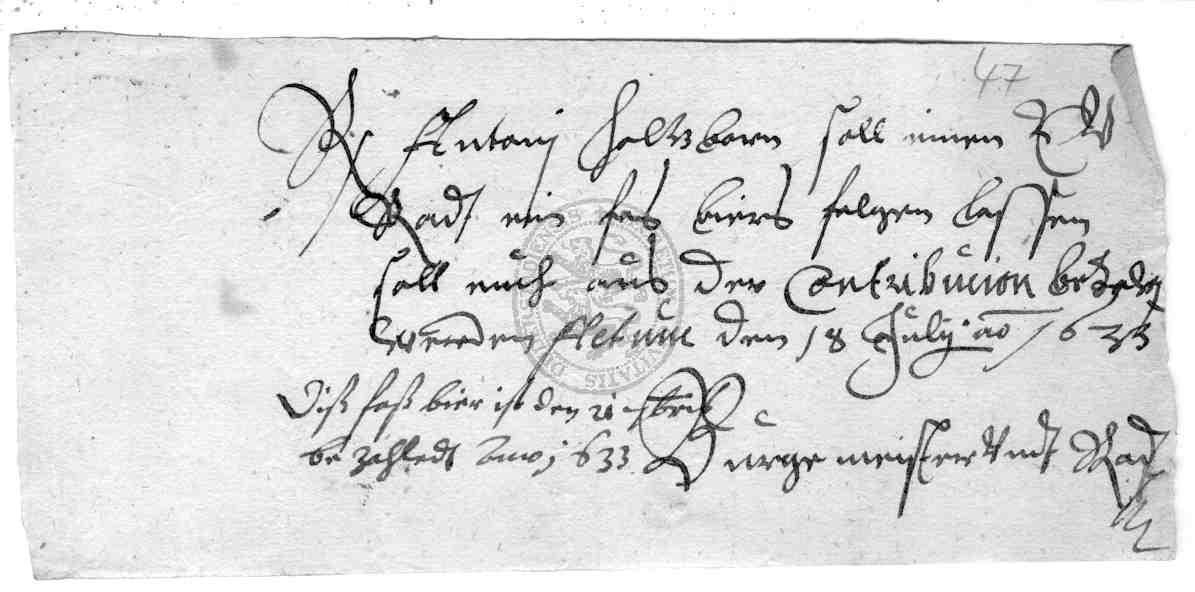 47
Antonj Holtzborn soll einen E W
Radt ein fas biers folgen lassen
soll euch aus der Contribucion bezalt
werden Actum den 18 Julij ao 1633
Diß faß bier ist den 21
bezahledt Anno 1633
Burgemeister Undt Rad